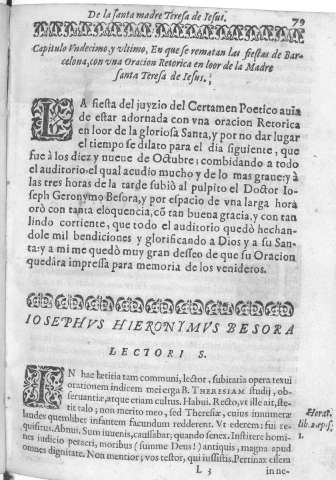 De la santa madre Teresa de Iesus. 79
Capitulo Vndecimo, y vltimo, En que se rematan las fiestas de Bar-
celona, con vna Oracion Retorica en loor de la Madre
santa Teresa de Iesus.
LA fiesta del juyzio del Certamen Poetico auia
de estar adornada con vna oracion Retorica
en loor de la gloriosa Santa, y por no dar lugar
el tiempo se dilato para el dia siguiente, que
fue à los diez y nueue de Octubre: combidando a todo
el auditorio el qual acudio mucho y de lo mas graue: y à
las tres horas de la tarde subiò al pulpito el Doctor Io-
seph Geronymo Besora, y por espacio de vna larga horà
orò con tanta eloquencia, cõ tan buena gracia, y con tan
lindo corriente, que todo el auditorio quedò hechan-
dole mil bendiciones y glorificando a Dios y a su San-
ta: y a mi me quedò muy gran desseo de que su Oracion
quedàra impressa para memoria de los venideros.
IOSEPHVS HIERONYMVS BESORA
LECTORI S.
IN hac lætitia tam communi, lector, subitaria opera texui
orationem indicem mei erga B. THERESIAM studij, ob-
seruantiæ, atque etiam cultus. Habui. Recto, vt ille ait, ste-
tit talo; non merito meo, sed Theresiæ, cuius innumeræ
laudes quemlibet infantem facundum redderent. Vt ederem: sui re-
quisitus. Abnui. Sum iuuenis, caussabar; quando senex. Institere homi-
nes iudicio peracri, moribus (summe Deus!) antiquis, magna apud
omnes dignitate. Non mentior; vos testor, qui institistis. Pertinax essem
Horat.
lib. 2. ep.
1.
L 3 in ne-